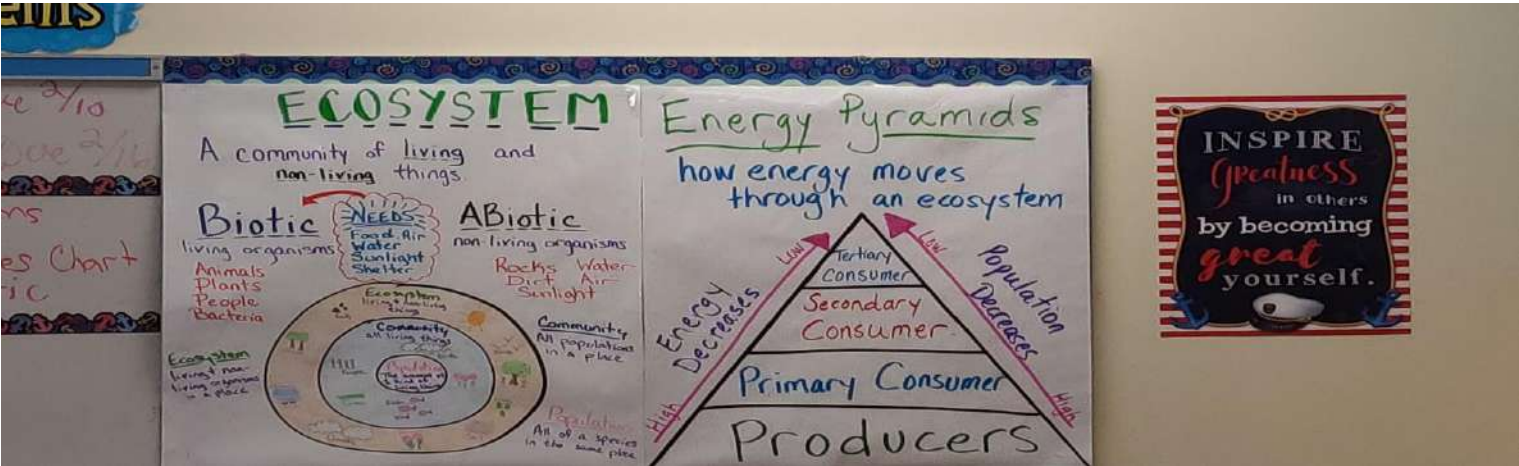 2/10
2/16
es Chart
ECOSYSTEM
A community of living and
non-living things.
Biotic
living organisms
Animals
Plants
People
Bacteria
NEEDS
Food, Air
Water
Sunlight
Shelter
ABiotic
non-living organisms
Rocks Water
Dirt Air
Sunlight
Ecosystem
living & non-living
things
Community
all living things
Population
Ecosystem
living & non-
living organisms
in a place
Community
All populations
in a place
Population
All of a species
in the same place
Energy Pyramids
how energy moves
through an ecosystem
Low
Energy
Decreases
High
Tertiary
Consumer
Secondary
Consumer
Primary Consumer
Producers
Low
Population
Decreases
High
INSPIRE
Greatness
in others
by becoming
great
yourself.